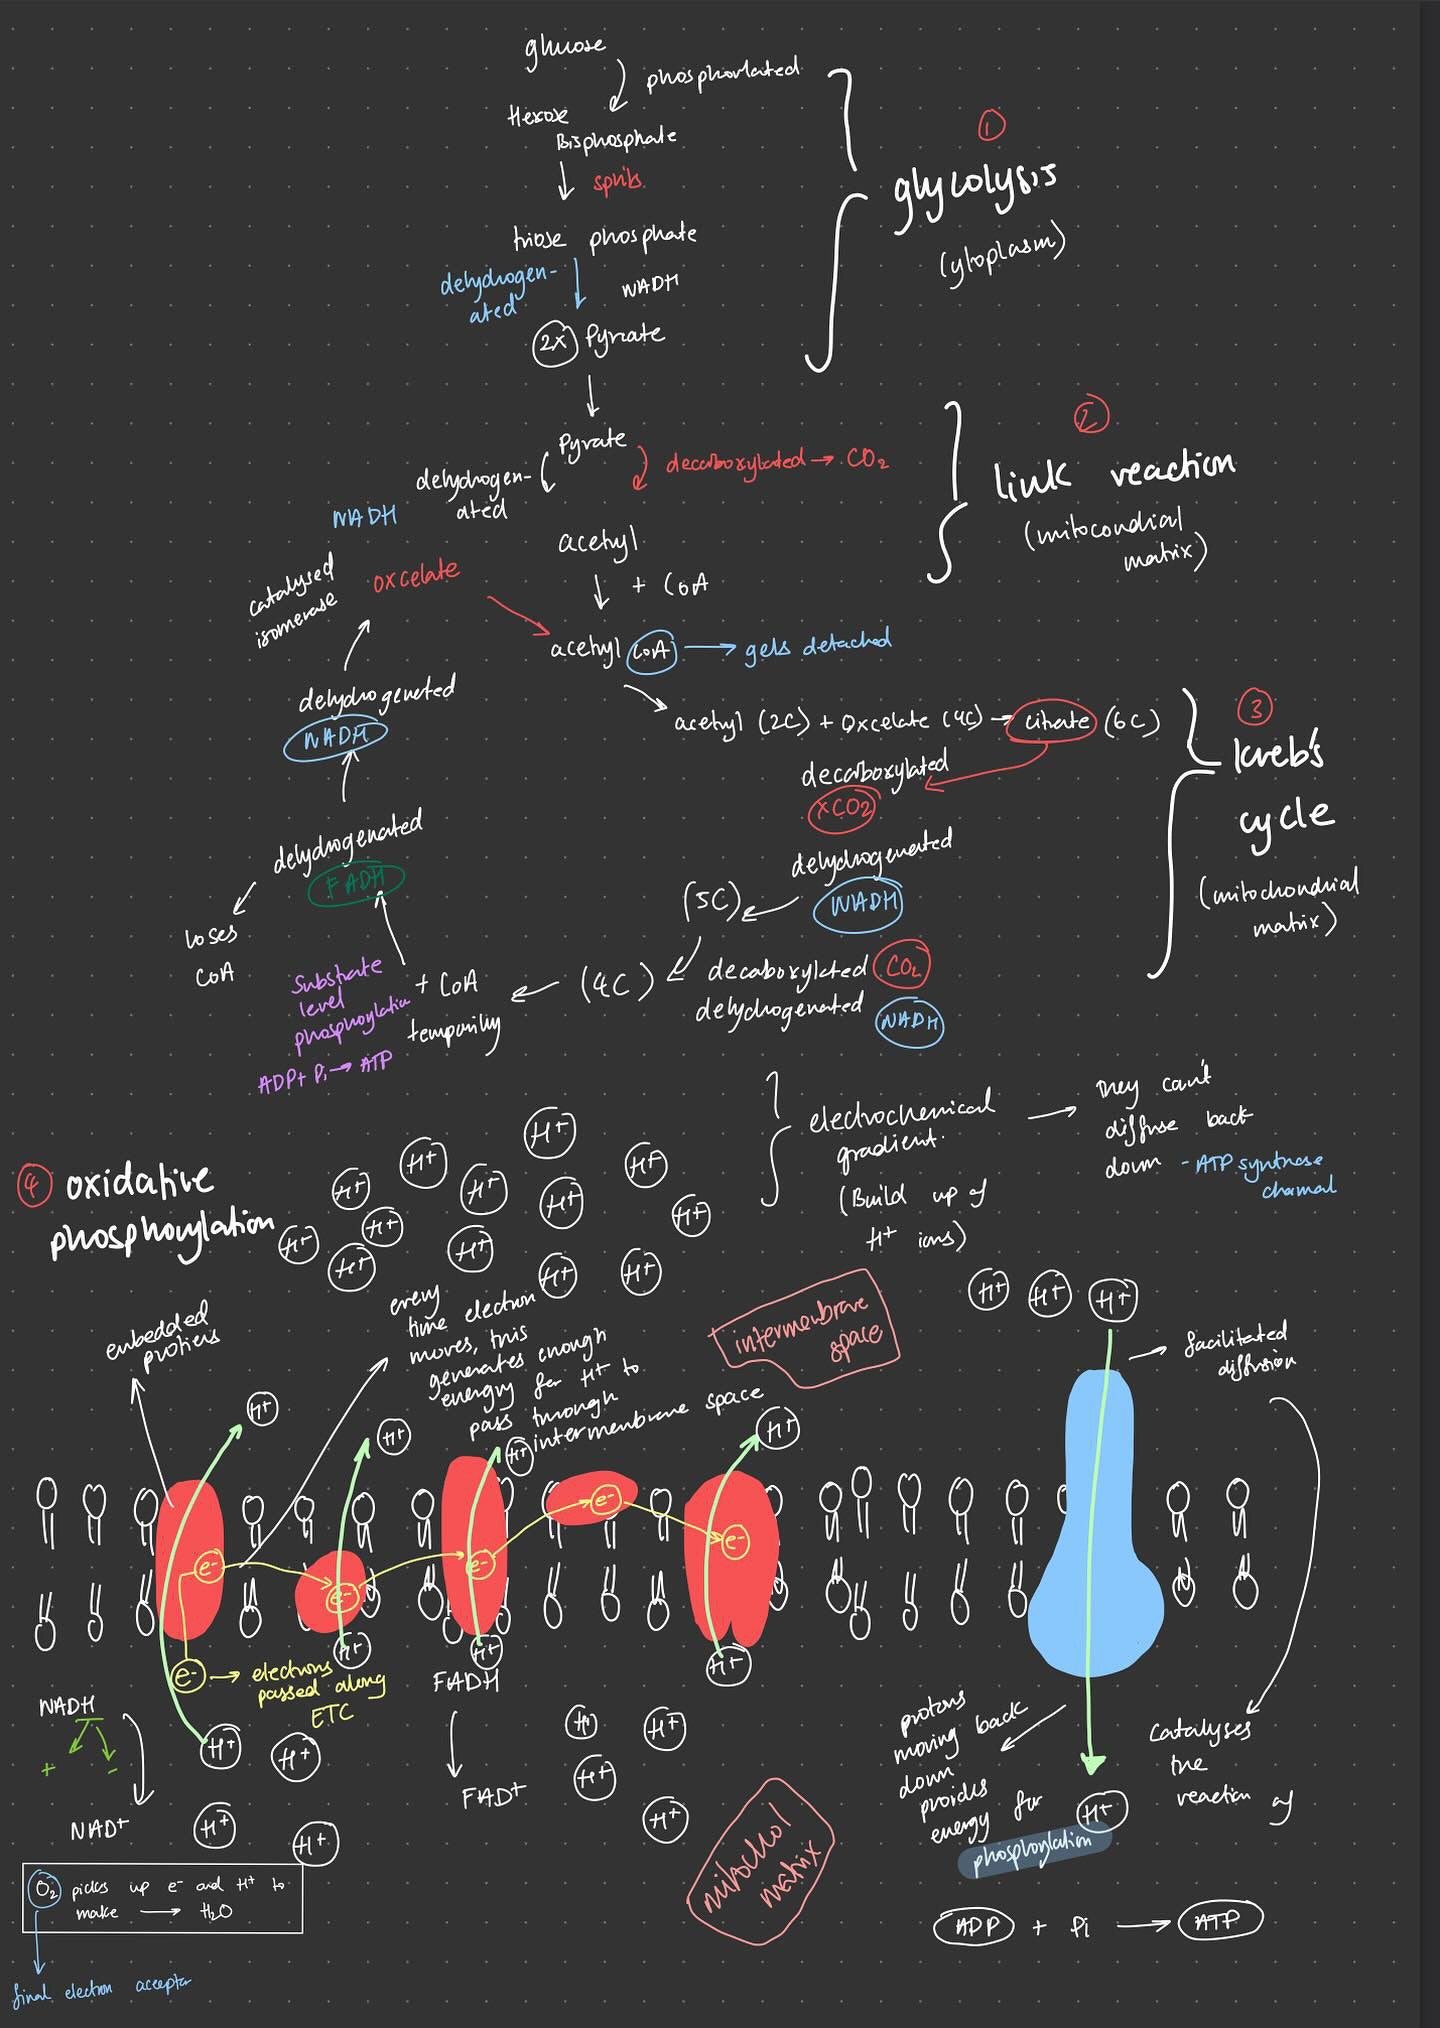 glucose
phosphorlated
Hexose
Bisphosphate
splits
triose phosphate
dehydrogen-
ated
NADH
2x Pyrvate
①
glycolysis
(cytoplasm)
Pyrvate
decarboxylated → CO2
dehydrogen-
ated
NADH
acetyl
+ CoA
②
link reaction
(mitocondrial
matrix)
catalysed
isomerase
oxcelate
acetyl CoA → gets detached
dehydrogenated
NADH
acetyl (2C) + Oxcelate (4C) → citrate (6C)
decarboxylated
xCO2
dehydrogenated
NADH
③
kreb's
cycle
(mitochondrial
matrix)
dehydrogenated
FADH
loses
CoA
(5C)
decaboxylated CO2
dehydrogenated NADH
(4C)
+ CoA
temporily
Substrate
level
phosphorylation
ADP + Pi → ATP
electrochemical
gradient.
(Build up of
H+ ions)
They can't
diffuse back
down - ATP synthase
channel
④ oxidative
phosphorylation
H+
H+
H+
H+
H+
H+
H+
H+
H+
H+
H+
H+
H+
H+ H+ H+
embedded
protiens
every
time electron
moves, this
generates enough
energy for H+ to
pass through
intermembrane space
intermembrave
space
facilitated
diffusion
H+
H+
H+
H+
e-
e-
e-
e-
e-
e- → electrons
passed along
ETC
H+
H+
H+
NADH
+ -
NAD+
H+
H+
H+
H+
FADH
FAD+
H+
H+
H+
H+
mitochol
matrix
protons
moving back
down
proides
energy for
phosphorylation
H+
catalyses
the
reaction of
ADP + Pi → ATP
O2 picks up e- and H+ to
make → H2O
final electron acceptor